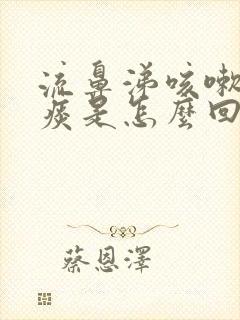 流鼻涕咳嗽
痰是怎麼回
蔡恩澤